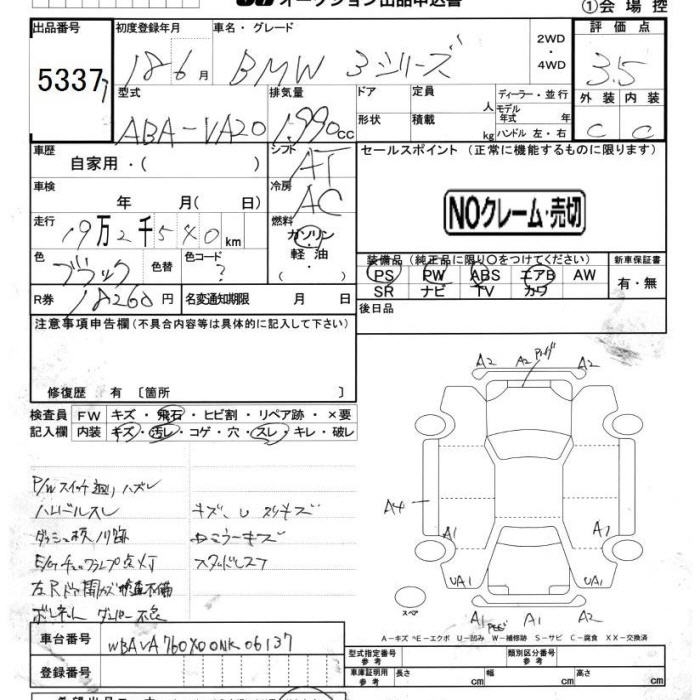 オークション出品申込書
①会場控
出品番号 初度登録年月 車名・グレード 2WD・4WD 評価点
5337 18 6月 BMW 3シリーズ 3.5
型式 排気量 ドア 定員 人 ディーラー・並行 外装 内装
ABA-VA20 1,990cc 形状 積載 kg モデル年式 年 ハンドル 左・右 C C
車歴 自家用・( ) シフト AT セールスポイント (正常に機能するものに限ります)
車検 年 月( 日) 冷房 AC NOクレーム・売切
走行 19万2千540km 燃料 ガソリン・軽油・
装備品(純正品に限り○をつけてください) 新車保証書
色 ブラック 色替 色コード ? PS PW ABS エアB AW 有・無
SR ナビ TV カワ
R券 18260円 名変通知期限 月 日 後日品
注意事項申告欄(不具合内容等は具体的に記入して下さい)
修復歴 有 〔箇所 〕
検査員 FW キズ・飛石・ヒビ割・リペア跡・×要
記入欄 内装 キズ・汚レ・コゲ・穴・スレ・キレ・破レ
A2 A2 A2
P/Wスイッチ ハズレ
ハンドルスレ キズ、U スリキズ
A4
ミラーキズ
A1 A1
点灯
左Rドア開かず
UA1 UA1
スペア
A1 A1 A2
A-キズ E-エクボ U-凹み W-補修跡 S-サビ C-腐食 XX-交換済
車台番号 WBAVA760X00NK06137
型式指定番号 参考 類別区分番号 参考
登録番号 車庫証明用 参考 長さ cm 幅 cm 高さ cm